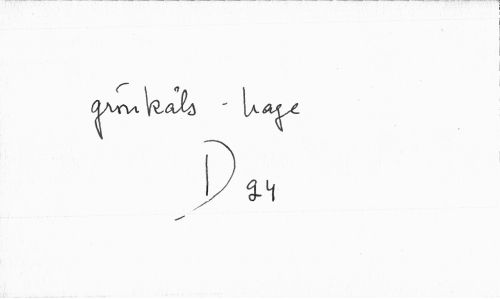 grönkåls - hage
D 94